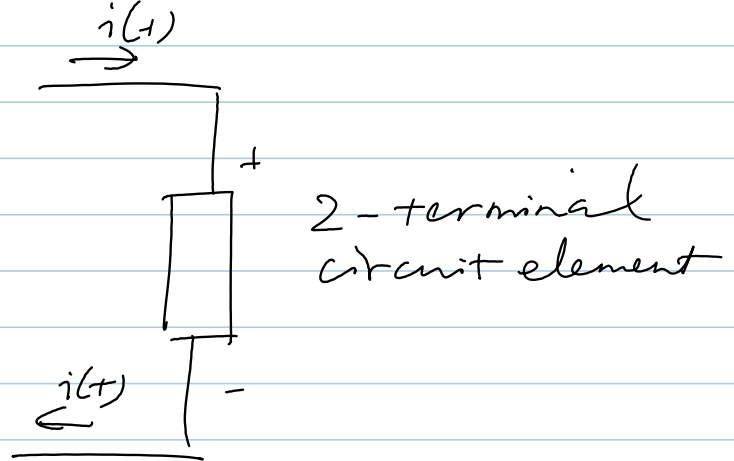 i(t)
+
2-terminal
circuit element
i(t)
-